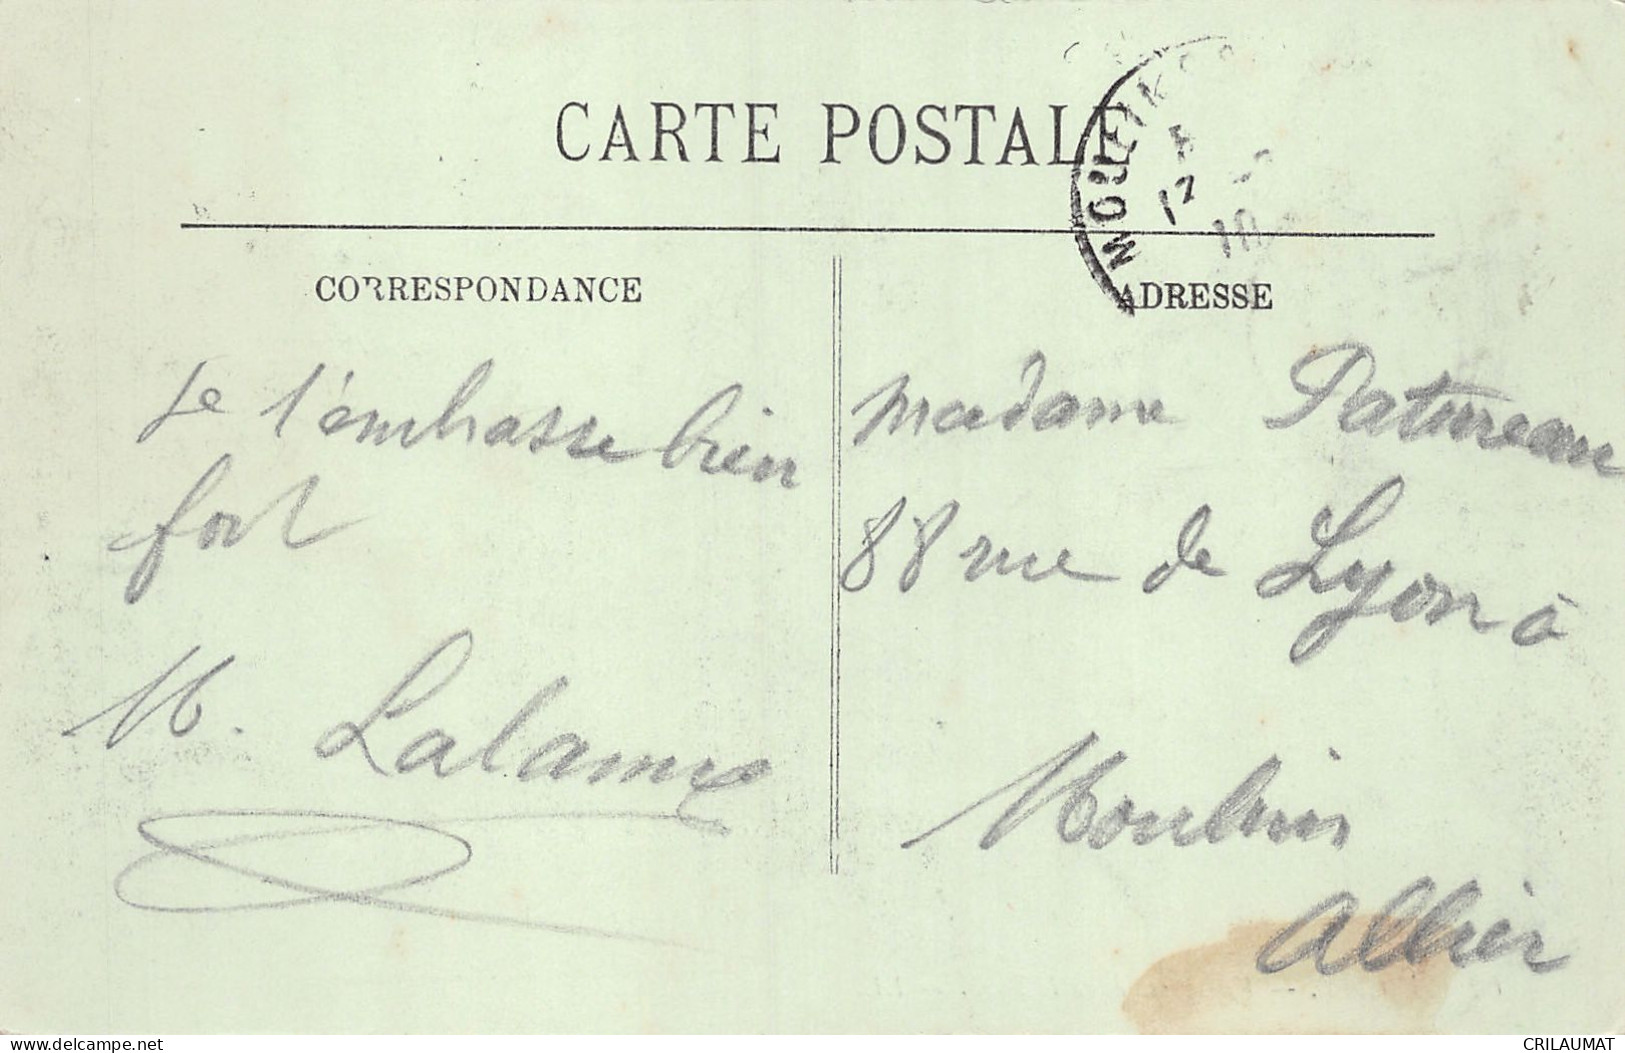 CARTE POSTALE
CORRESPONDANCE
Je t'embrasse bien
fort
M. Lalanne
ADRESSE
Madame Patureau
88 rue de Lyon à
Moulins
Allier
17
delcampe.net
CRILAUMAT